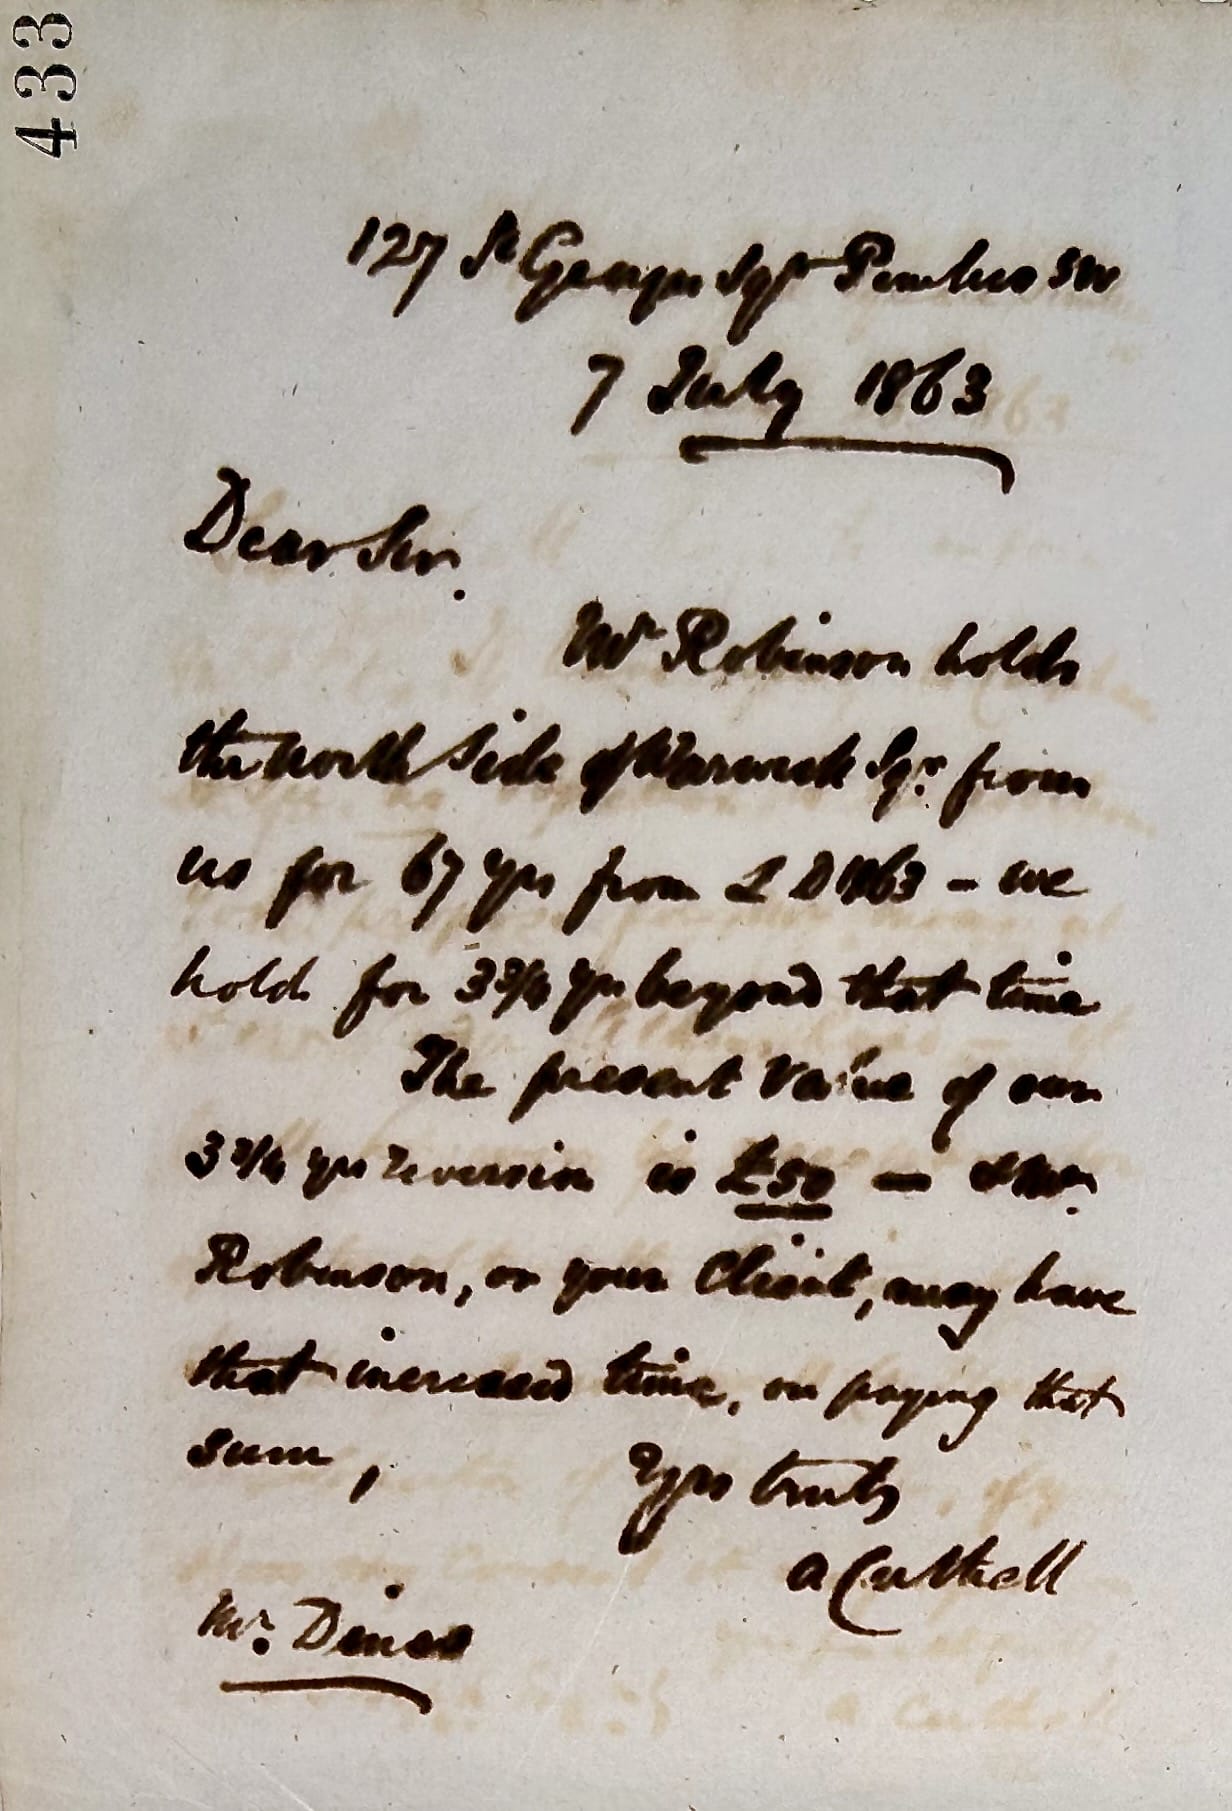 433
127 St Georges Sqre Pimlico SW
7 July 1863
Dear Sir.
Mr Robinson holds
the north side of Warwick Sqr. from
us for 67 yrs from L D 1863 - we
hold for 3 3/4 yrs beyond that time
The present value of our
3 3/4 yrs reversion is £50 — & Mr.
Robinson, or your Client, may have
that increased time, on paying that
sum,
Yrs truly
A Cuthell
Mr. Dines